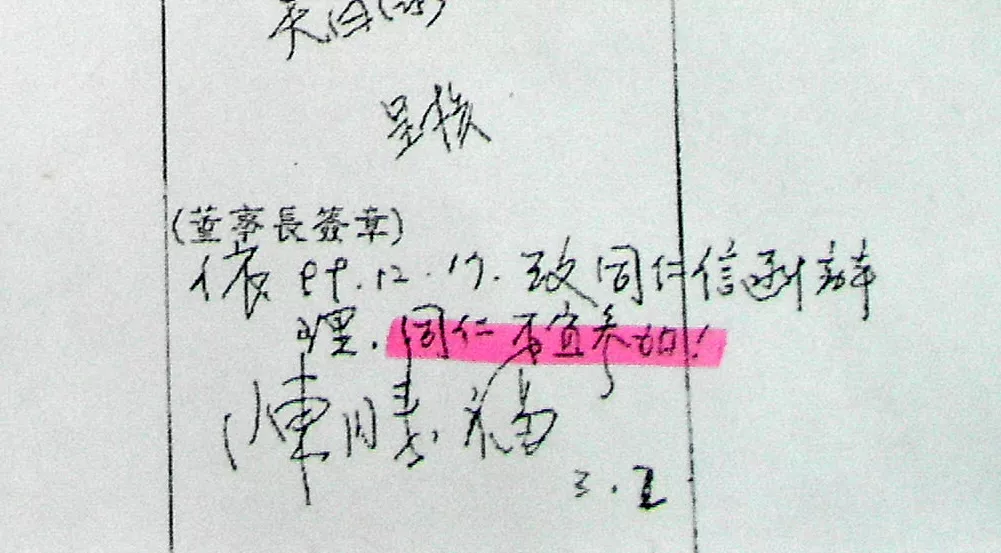 呈核
(董事長簽章)
依 99.12.17. 致同仁信函辦
理. 同仁不宜參加!
陳勝福
3.2